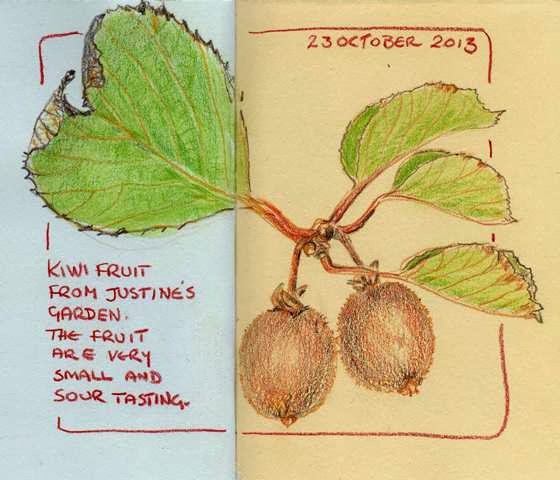 23 OCTOBER 2013
KIWI FRUIT
FROM JUSTINE'S
GARDEN.
THE FRUIT
ARE VERY
SMALL AND
SOUR TASTING.